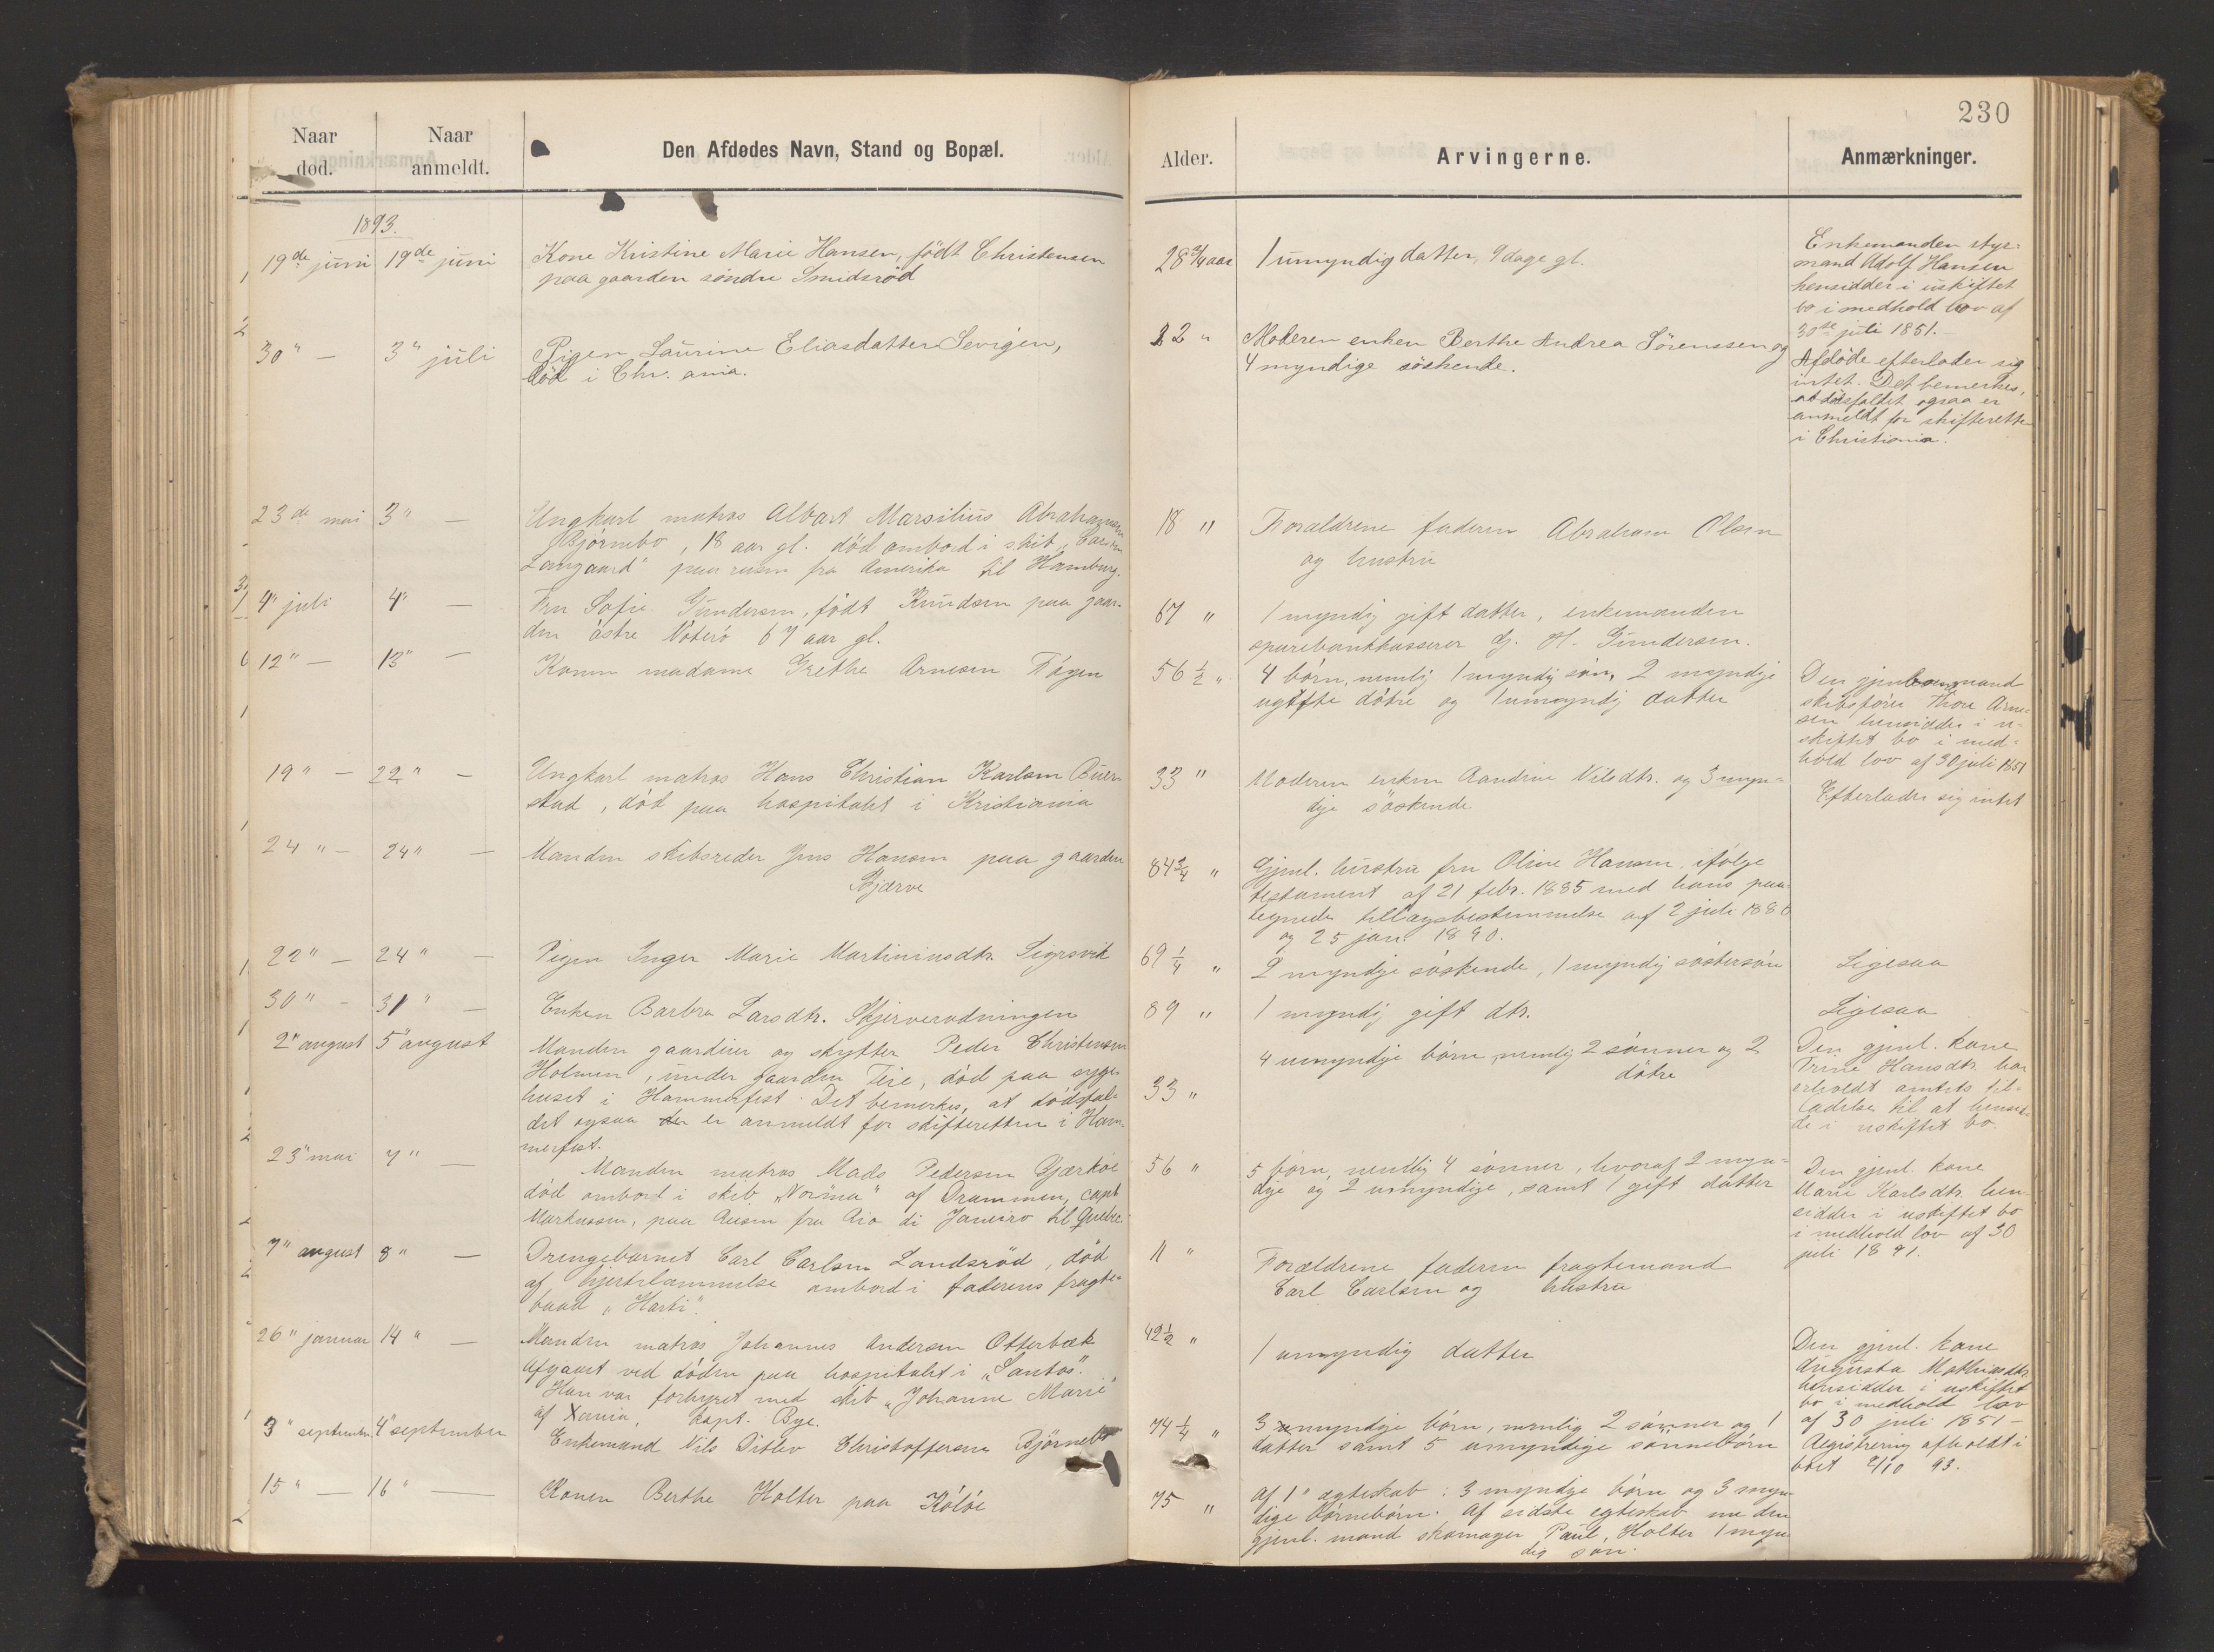 230
Naar død.
Naar anmeldt.
Den Afdødes Navn, Stand og Bopæl.
Alder.
Arvingerne.
Anmærkninger.
1893.
19de juni
19de juni
Kone Kristine Marie Hansen, födt Christensen
paa gaarden söndre Smidsröd
28 3/4 aar
1 umyndig datter, 9 dage gl.
Enkemanden styr-
mand Adolf Hansen
hensidder i uskiftet
bo i medhold lov af
30te juli 1851.
30" —
3" juli
Pigen Laurine Eliasdatter
död i Chr.ania.
22 "
Moderen enken Berthe Andrea Sörenssen og
4 myndige söskende.
Afdöde efterlader sig
intet. Det bemerkes,
at dödsfaldet ogsaa er
anmeldt for skifteretten
i Christiania.
23de mai
3" —
Ungkarl matros Albart Marsilius Abrahamsen
Bjørnebo, 18 aar gl. död ombord i skib "Carsten
Langaard" paa reisen fra Amerika til Hamburg.
18 "
Forældrene faderen Abraham Olsen
og hustru
4" juli
4" —
Fru Sofie Gundersen, födt Knudsen paa gaar-
den östre Nöterö 67 aar gl.
67 "
1 myndig gift datter, enkemanden
sparebankkasserer G. H. Gundersen.
12" —
13" —
Konen madame Grethe Arnesen
56 1/2 "
4 börn, nemlig 1 myndig sön, 2 myndige
ugifte dötre og 1 umyndig datter
Den gjenl. mand
skibsförer Thore Arne-
sen hensidder i u-
skiftet bo i med-
hold lov af 30 juli 1851
19" —
22" —
Ungkarl matros Hans Christian Karlsen Buer-
stad, död paa hospitalet i Kristiania
33 "
Moderen enken Randine Nilsdtr. og 3 myn-
dige söskende
Efterlader sig intet
24" —
24" —
Manden skibsreder Jens Hansen paa gaarden
84 3/4 "
Gjenl. hustru fru Oline Hansen ifölge
testament af 21 febr. 1885 med hans paa-
tegnede tillægsbestemmelse af 2 juli 1886
og 25 jan. 1890.
22" —
24" —
Pigen Inger Marie Martiniusdtr.
69 1/4 "
2 myndige söskende, 1 myndig söstersön
Ligesaa
30" —
31" —
Enken Barbra Larsdtr. Skjerverödningen
89 "
1 myndig gift dtr.
Ligesaa
2" august
5" august
Manden gaardeier og skytter Peder Christensen
Holmen, under gaarden Teie, död paa syge-
huset i Hammerfest. Det bemerkes, at dödsfal-
det ogsaa er anmeldt for skifteretten i Ham-
merfest.
33 "
4 umyndige börn, nemlig 2 sönner og 2
dötre
Den gjenl. kone
Trine Hansdtr. har
erholdt amtets til-
ladelse til at hensid-
de i uskiftet bo.
23" mai
7" —
Manden matros Mads Pedersen Gjærköe
död ombord i skib "Norma" af Drammen, capt
Markussen, paa Reisen fra Rio di Janeiro til Quebec.
56 "
5 börn, nemlig 4 sönner, hvoraf 2 myn-
dige og 2 umyndige, samt 1 gift datter
Den gjenl. kone
Marie Karlsdtr. hen-
sidder i uskiftet bo
i medhold lov af 30
juli 1891.
7" august
8" —
Drengebarnet Carl Carlsen Landsröd, död
af hjertelammelse ombord i faderens fragte-
baad "Harti".
11 "
Forældrene faderen fragtemand
Carl Carlsen og hustru
26" januar
14" —
Manden matros Johannes Andersen Otterbæk
Afgaaet ved döden paa hospitalet i "Santos".
Han var forhyret med skib "Johanne Marie"
af Xania, kapt. Bye.
42 1/2 "
1 umyndig datter
Den gjenl. kone
Augusta Mathiasdtr.
hensidder i uskiftet
bo i medhold lov
af 30 juli 1851 —
3" september
4" september
Enkemand Nils Ditlev Christoffersen Björnebo
74 1/4 "
3 myndige börn, nemlig 2 sönner og 1
datter samt 5 umyndige sönnebörn
Registrering afholdt i
boet 2/10 93.
15" —
16" —
Konen Berthe Holter paa Kölöe
75 "
Af 1" ægteskab: 3 myndige börn og 3 myn-
dige börnebörn. Af sidste egteskab med den
gjenl. mand skomager Paul Holter 1 myn-
dig sön.